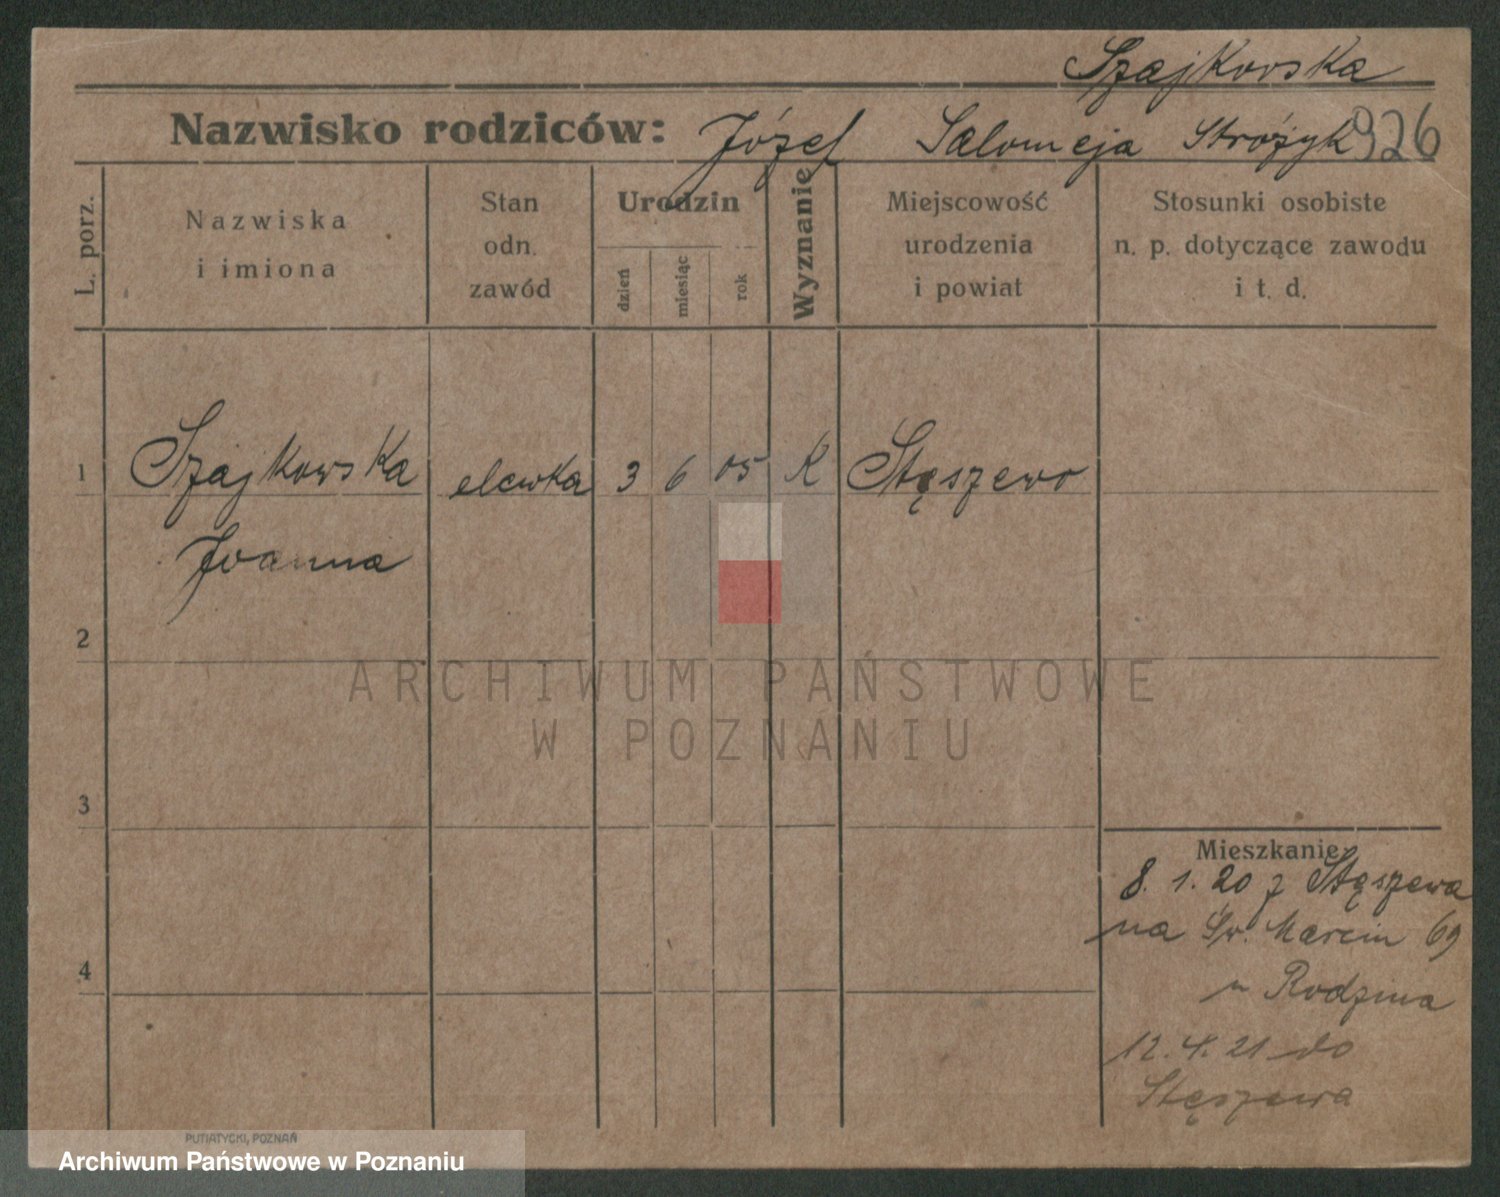 Szajkowska
Nazwisko rodziców: Józef Salomeja Stróżyk 926
L. porz.
Nazwiska
i imiona
Stan
odn.
zawód
Urodzin
dzień
miesiąc
rok
Wyznanie
Miejscowość
urodzenia
i powiat
Stosunki osobiste
n. p. dotyczące zawodu
i t. d.
1 Szajkowska elewka 3 6 05 K Stęszewo
Joanna
2
ARCHIWUM PAŃSTWOWE
W POZNANIU
3
Mieszkanie
8. 1. 20 z Stęszewa
na Św. Marcin 69
4
Rodzina
12. 4. 21 do
Stęszewa
PUTIATYCKI, POZNAŃ
Archiwum Państwowe w Poznaniu